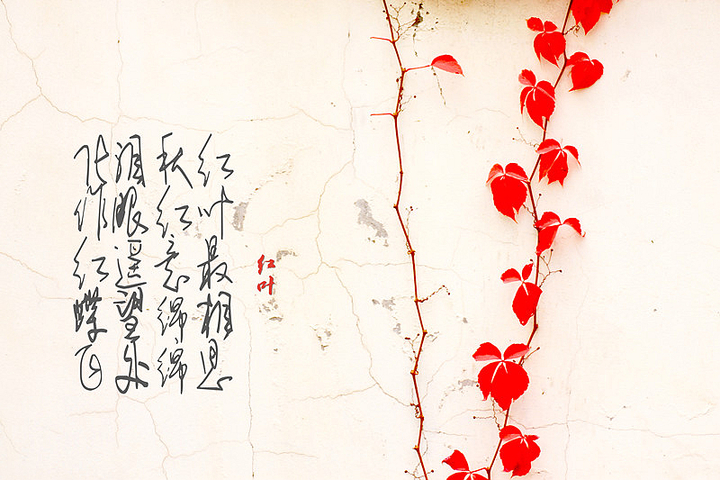 红叶
红叶最相思
秋红意绵绵
泪眼遥望处
化作红蝶